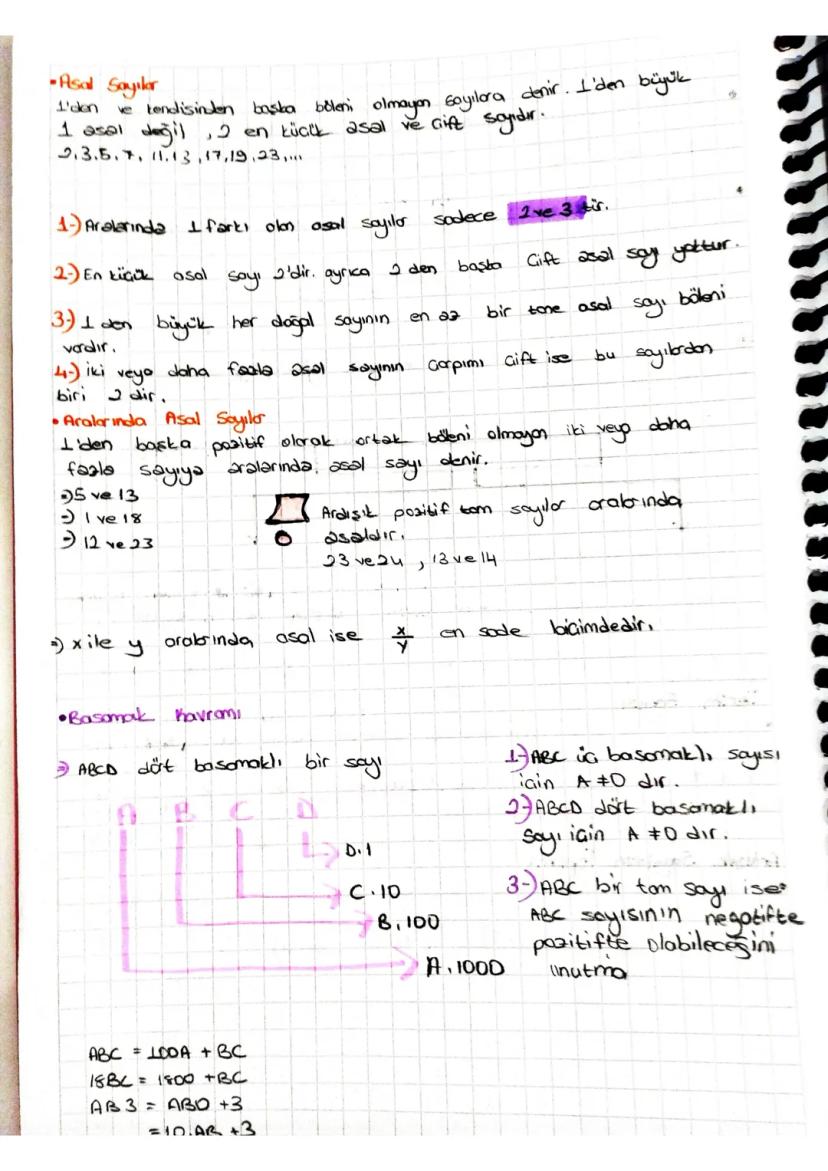 • Asal Sayılar
1'den ve kendisinden başka böleni olmayan sayılara denir. 1'den büyük
1 asal değil, 2 en küçük asal ve çift sayıdır.
2,3,5,7,11,13,17,19,23,...
1-) Aralarında 1 farkı olan asal sayılar sadece 2 ve 3 tür.
2-) En küçük asal sayı 2'dir. ayrıca 2 den başka çift asal sayı yoktur.
3-) 1 den büyük her doğal sayının en az bir tane asal sayı böleni
vardır.
4-) iki veya daha fazla asal sayının çarpımı çift ise bu sayılardan
biri 2 dir.
• Aralarında Asal Sayılar
1'den başka pozitif olarak ortak böleni olmayan iki veya daha
fazla sayıya aralarında asal sayı denir.
⇒ 5 ve 13
⇒ 1 ve 18
⇒ 12 ve 23
Ardışık pozitif tam sayılar aralarında
asaldır.
23 ve 24, 13 ve 14
⇒ x ile y aralarında asal ise x/y en sade biçimdedir.
• Basamak Kavramı
⇒ ABCD dört basamaklı bir sayı
A B C D
D.1
C.10
B.100
A.1000
1-) ABC üç basamaklı sayısı
için A ≠ 0 dır.
2-) ABCD dört basamaklı
sayı için A ≠ 0 dır.
3-) ABC bir tam sayı ise
ABC sayısının negatifte
pozitifte olabileceğini
unutma
ABC = 100A + BC
18BC = 1800 + BC
AB3 = AB0 + 3
= 10.AB + 3